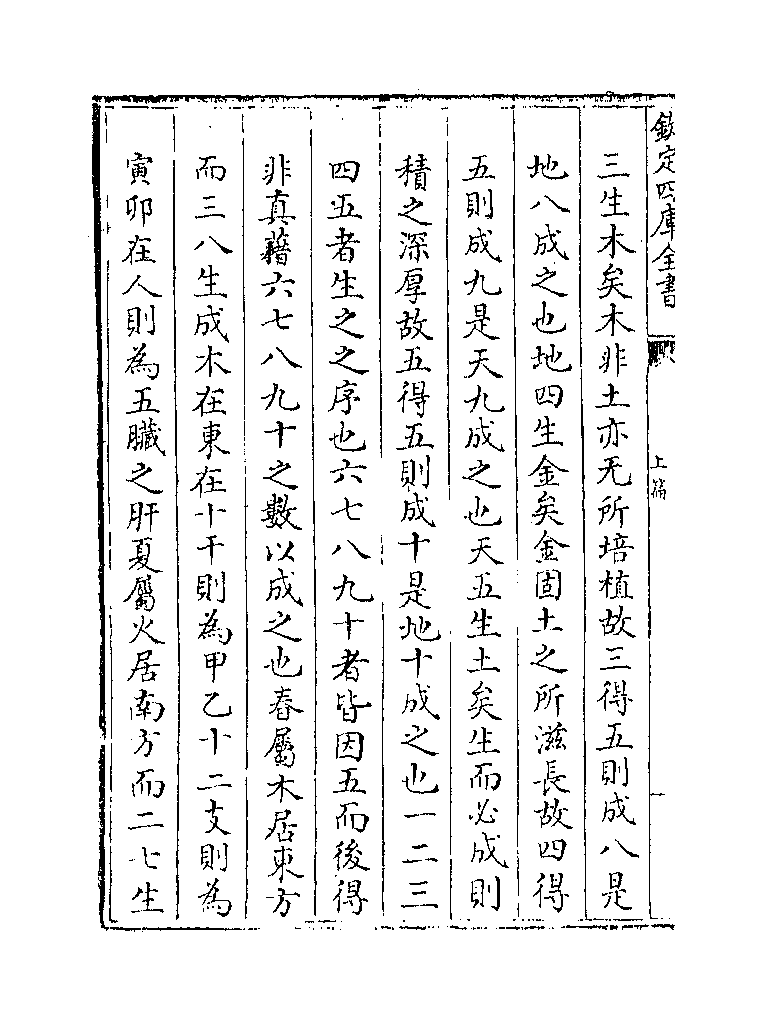 欽定四庫全書
上篇
一
三生木矣木非土亦无所培植故三得五則成八是
地八成之也地四生金矣金固土之所滋長故四得
五則成九是天九成之也天五生土矣生而必成則
積之深厚故五得五則成十是地十成之也一二三
四五者生之之序也六七八九十者皆因五而後得
非真藉六七八九十之數以成之也春屬木居東方
而三八生成木在東在十干則為甲乙十二支則為
寅卯在人則為五臟之肝夏屬火居南方而二七生